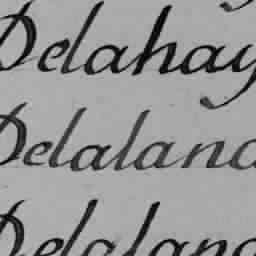 Delahay
Delaland
Delaland